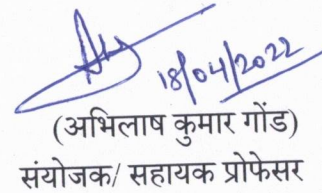 18/04/2022
(अभिलाष कुमार गोंड)
संयोजक/ सहायक प्रोफेसर